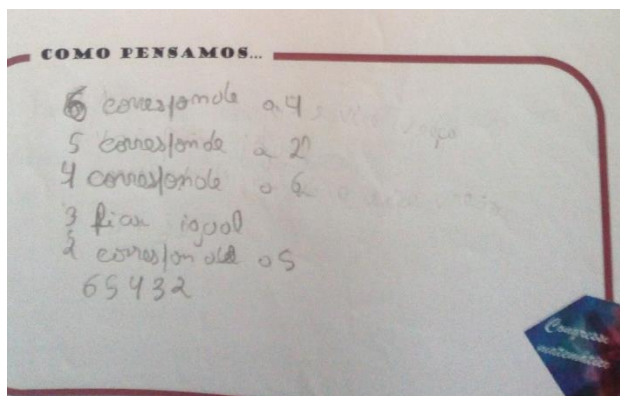 COMO PENSAMOS...
6 corresponde a 4
5 corresponde a 2
4 corresponde a 6
3 fica igual
2 corresponde a 5
65432
Congresso
matemático